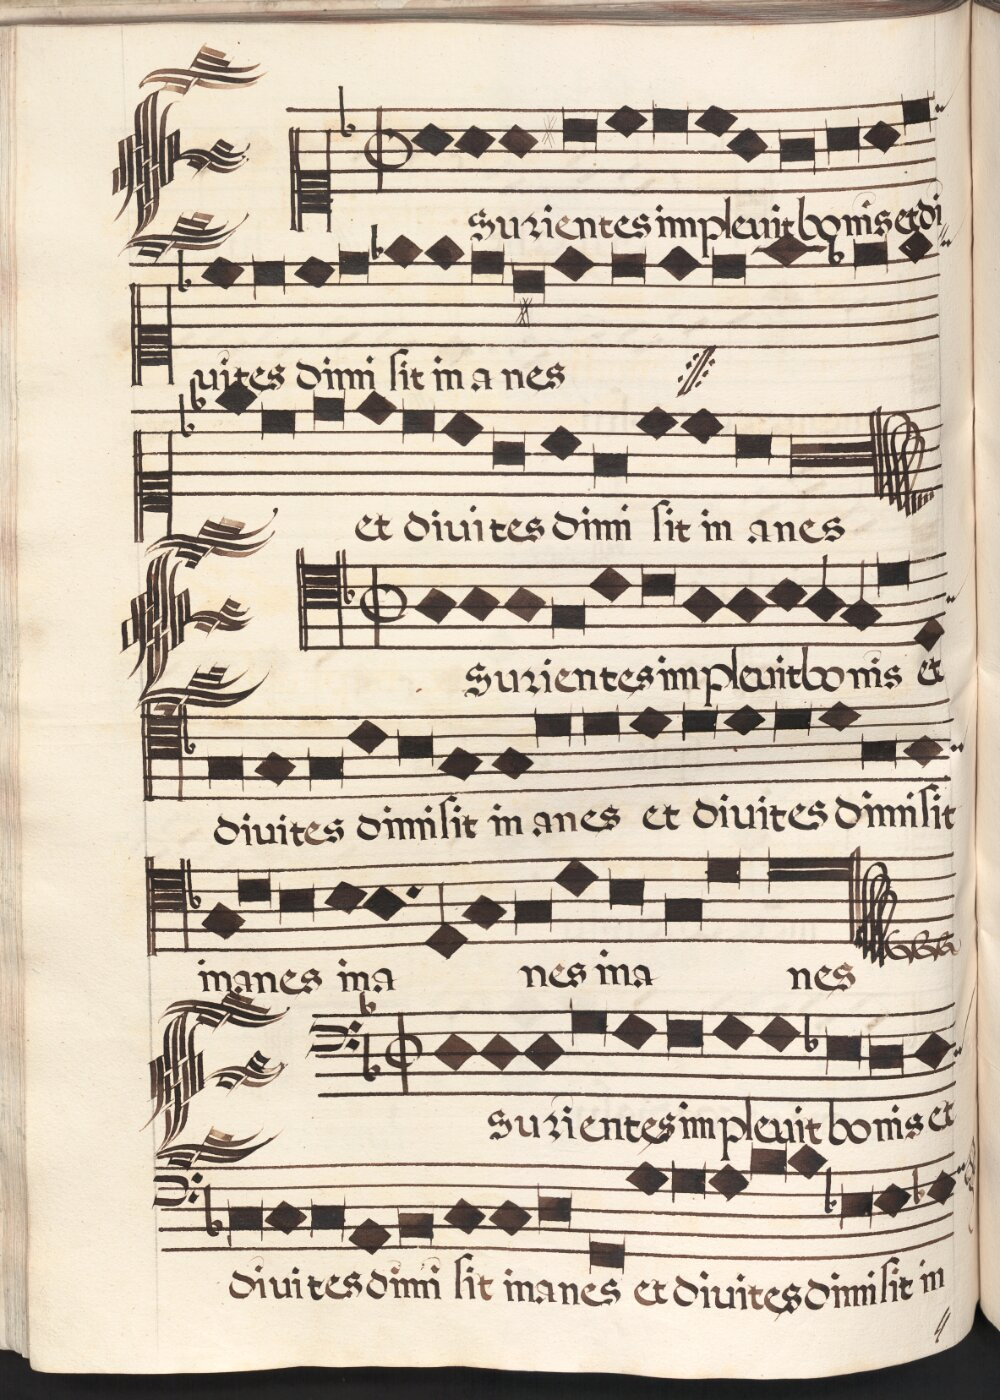 Esurientes implevit bonis et di
vites dimi sit in a nes
et divites dimi sit in anes
Esurientes implevit bonis et
divites dimisit in anes et divites dimisit
inanes ina nes ina nes
Esurientes implevit bonis et
divites dimi sit inanes et divites dimisit in